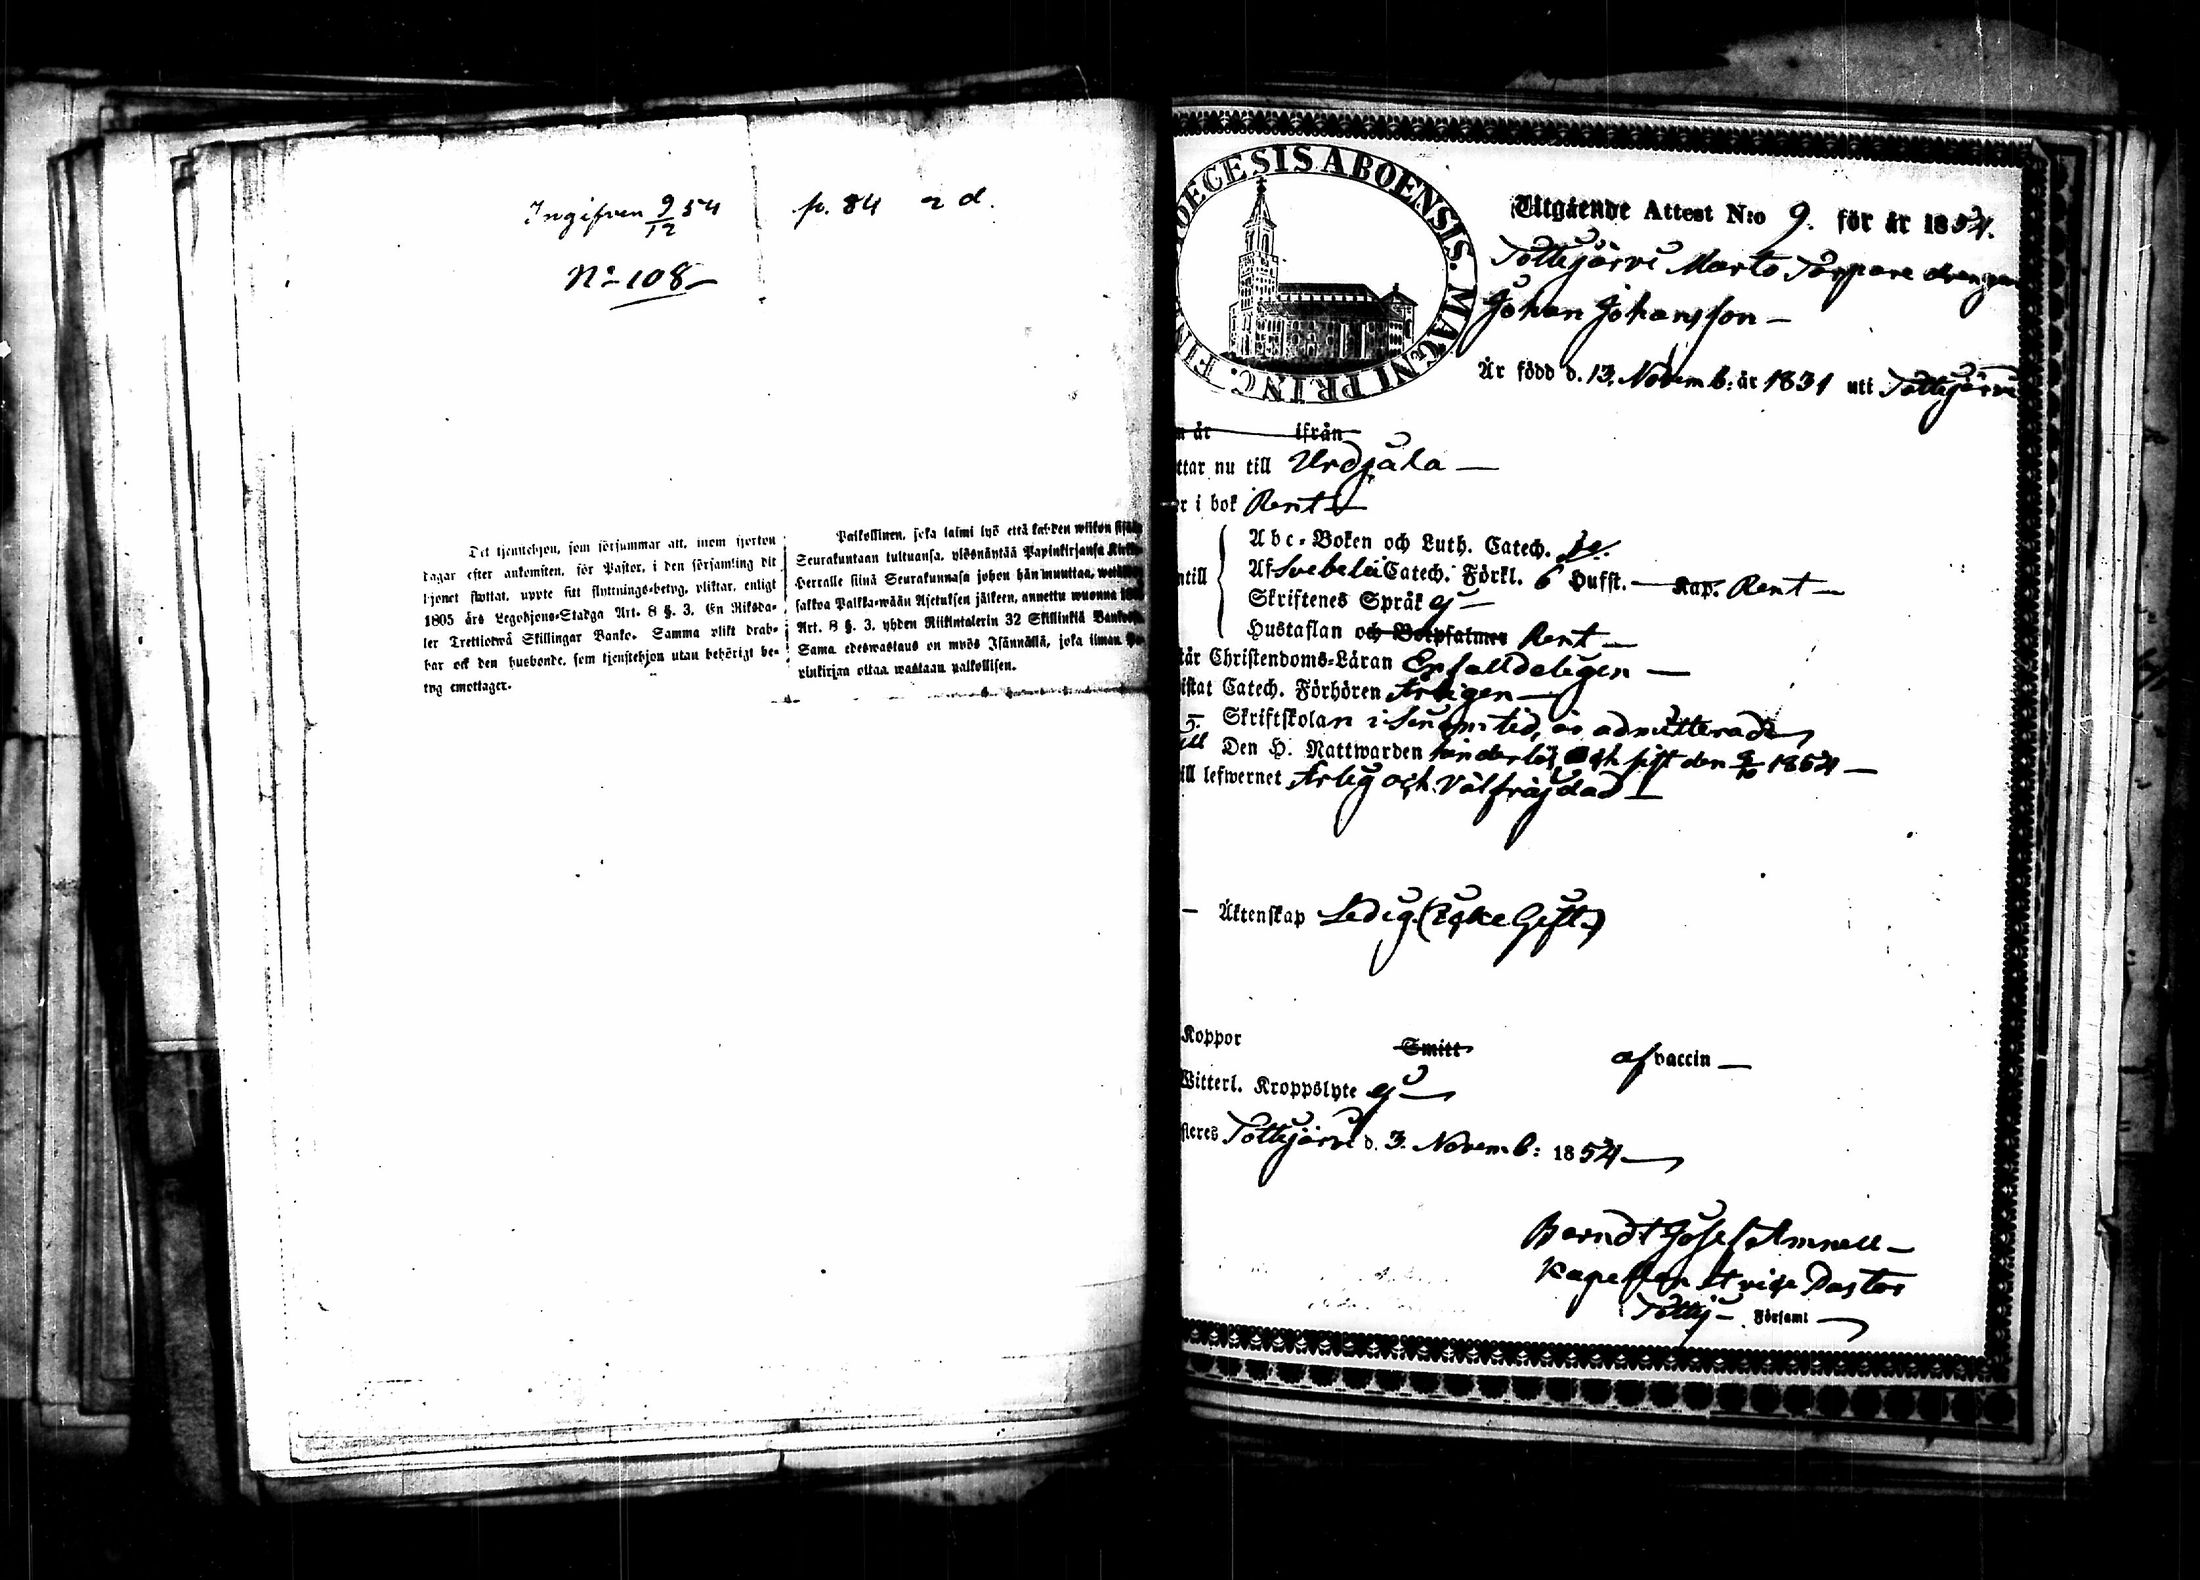 Ingifven 9/12 54 p. 84 2 d.
No 108
Det tjenstehjon, som försummar att, inom fjorton
dagar efter ankomsten, för Pastor, i den församling dit
hjonet flyttat, uppte sitt flyttnings-betyg, pliktar, enligt
1805 års Legohjons-Stadga Art. 8 §. 3. En Riksda-
ler Trettiotwå Skillingar Banko. Samma plikt drab-
bar ock den husbonde, som tjenstehjon utan behörigt be-
tyg emottager.
Palkollinen, joka laimi lyö että kahden wiikon sisällä
Seurakuntaan tultuansa, ylösnäyttää Papinkirjansa Kirkko-
Herralle siinä Seurakunnasa johon hän muuttaa,
sakkoa Palkka-wään Asetuksen jälkeen, annettu wuonna
Art. 8 §. 3. yhden Riikintalerin 32 Skillinkiä
Sama edeswastaus on myös Isännällä, joka ilman Pa-
pinkirjaa ottaa wastaan palkollisen.
DIOECESIS ABOENSIS. MAGNI PRINC. FIN
Utgående Attest N:o 9. för år 1854.
Tottijärvi Marto Torpare drengen
Johan Johansson —
Är född d. 13. Novemb: år 1831 uti Tottijärvi
n år ifrån
ttar nu till Urdjala —
er i bok Rent —
Abc-Boken och Luth. Catech. Do.
ntill Af Svebelii Catech. Förkl. 6 Hufst. — Kap. Rent —
Skriftenes Språk ej —
Hustaflan och Botpsalmer Rent —
tår Christendoms-Läran Enfalldeligen —
istat Catech. Förhören Årligen —
Skriftskolan i sinom tid, är admitterad
till Den H. Nattwarden hinderlös och sist den 1854 —
ill lefwernet Ärlig och Välfräjdad —
— Äktenskap Ledig (Icke Gift)
Koppor Smitt af vaccin —
Witterl. Kroppslyte ej —
steres Tottijärvi d. 3. Novemb: 1854 —
Berndt Josef Amnell —
Kapellan Vice Pastor
Tottij — Församl —